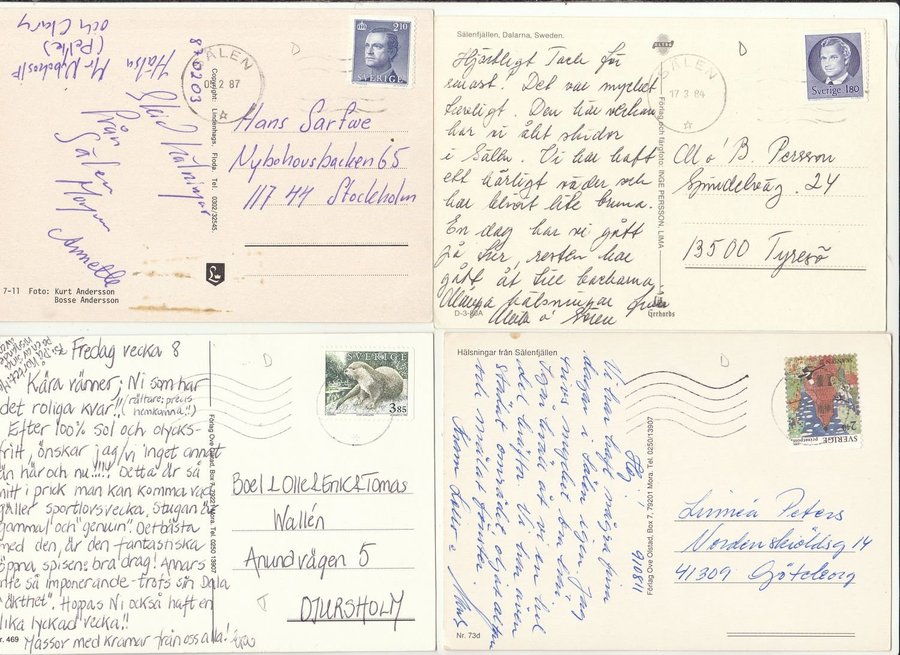 870203
SÄLEN
03 2 87
2 10
SVERIGE
Copyright: Lindenhags, Floda. Tel. 0302/32545.
Mr Nybohovs/P
(Pelle)
och Clary
Hälsa
Skidhälningar
från
Sälen
Annette
Hans Sarfwe
Nybohovsbacken 65
117 44 Stockholm
7-11 Foto: Kurt Andersson
Bosse Andersson
Sälenfjällen, Dalarna, Sweden.
ULTRA
SÄLEN
17 3 84
Sverige 1.80
Hjärtligt Tack för
senast! Det var mycket
trevligt. Den här veckan
har vi åkt skidor
i Sälen. Vi har haft
ett härligt väder och
har blivit lite bruna.
En dag har vi gått
på tur, resten har
gått åt till backarna
hälsningar från
Ulla o' Sören
Förlag och färgfoto: INGE PERSSON, LIMA
M o' B. Persson
Spindelväg. 24
13500 Tyresö
D-3-80A
Gerhards
Fredag vecka 8
SVERIGE
3.85
Kära vänner; Ni som har
det roliga kvar!! (rättare; precis
hemkomna!!)
Efter 100% sol och olycks-
fritt, önskar jag/vi inget annat
än här och nu!!!! Detta är så
mitt i prick man kan komma vad
gäller sportlovsvecka. Stugan är
gammal och "genuin". Det bästa
med den, är den fantastiska
öppna spisen: bra drag! Annars
inte så imponerande - trots sin Dala
"äkthet". Hoppas Ni också haft en
lika lyckad vecka!!
Massor med kramar från oss alla!
r. 469
Förlag Ove Olstad, Box 7, 7922 Mora. Tel. 0250 13907
Boel & Olle & Erik & Tomas
Wallén
Anundvägen 5
DJURSHOLM
Hälsningar från Sälenfjällen
SVERIGE
2.40
Hej! 910811
Vi har haft några fina
dagar i Sälen igen. Jag
trivs mycket bra här
Förlag Ove Olstad, Box 7, 79201 Mora. Tel. 0250/13907
Linnéa Peters
Nordenskiöldsg 14
41309 Göteborg
Nr. 73d